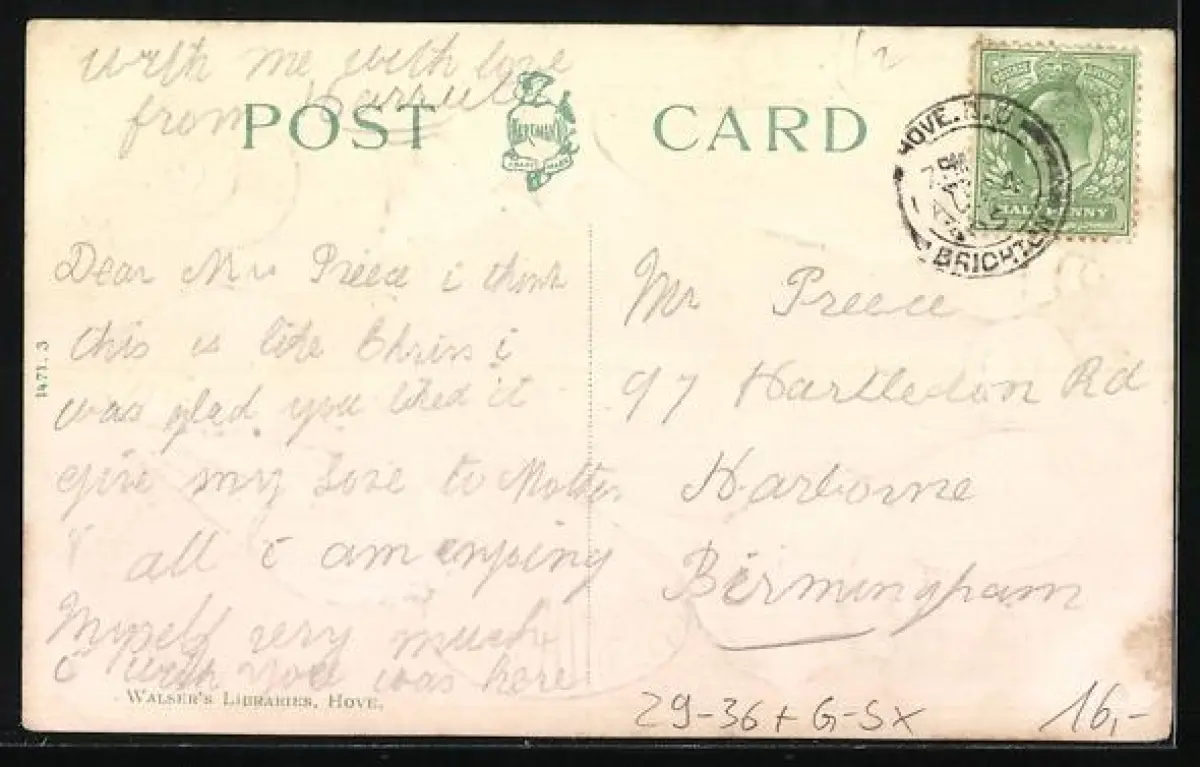 with me with love
from
POST CARD
HARTMANN
TRADE MARK
HOVE. S.O
BRIGHTON
HALFPENNY
Dear Mrs Preece i think
this is like Chriss i
was glad you liked it
give my love to Mother
& all i am enjoying
Myself very much
i wish you was here
1471. 3
WALSER'S LIBRARIES, HOVE.
Mr Preece
97 Hartledon Rd
Harborne
Birmingham
29-36+G-Sx
16,-